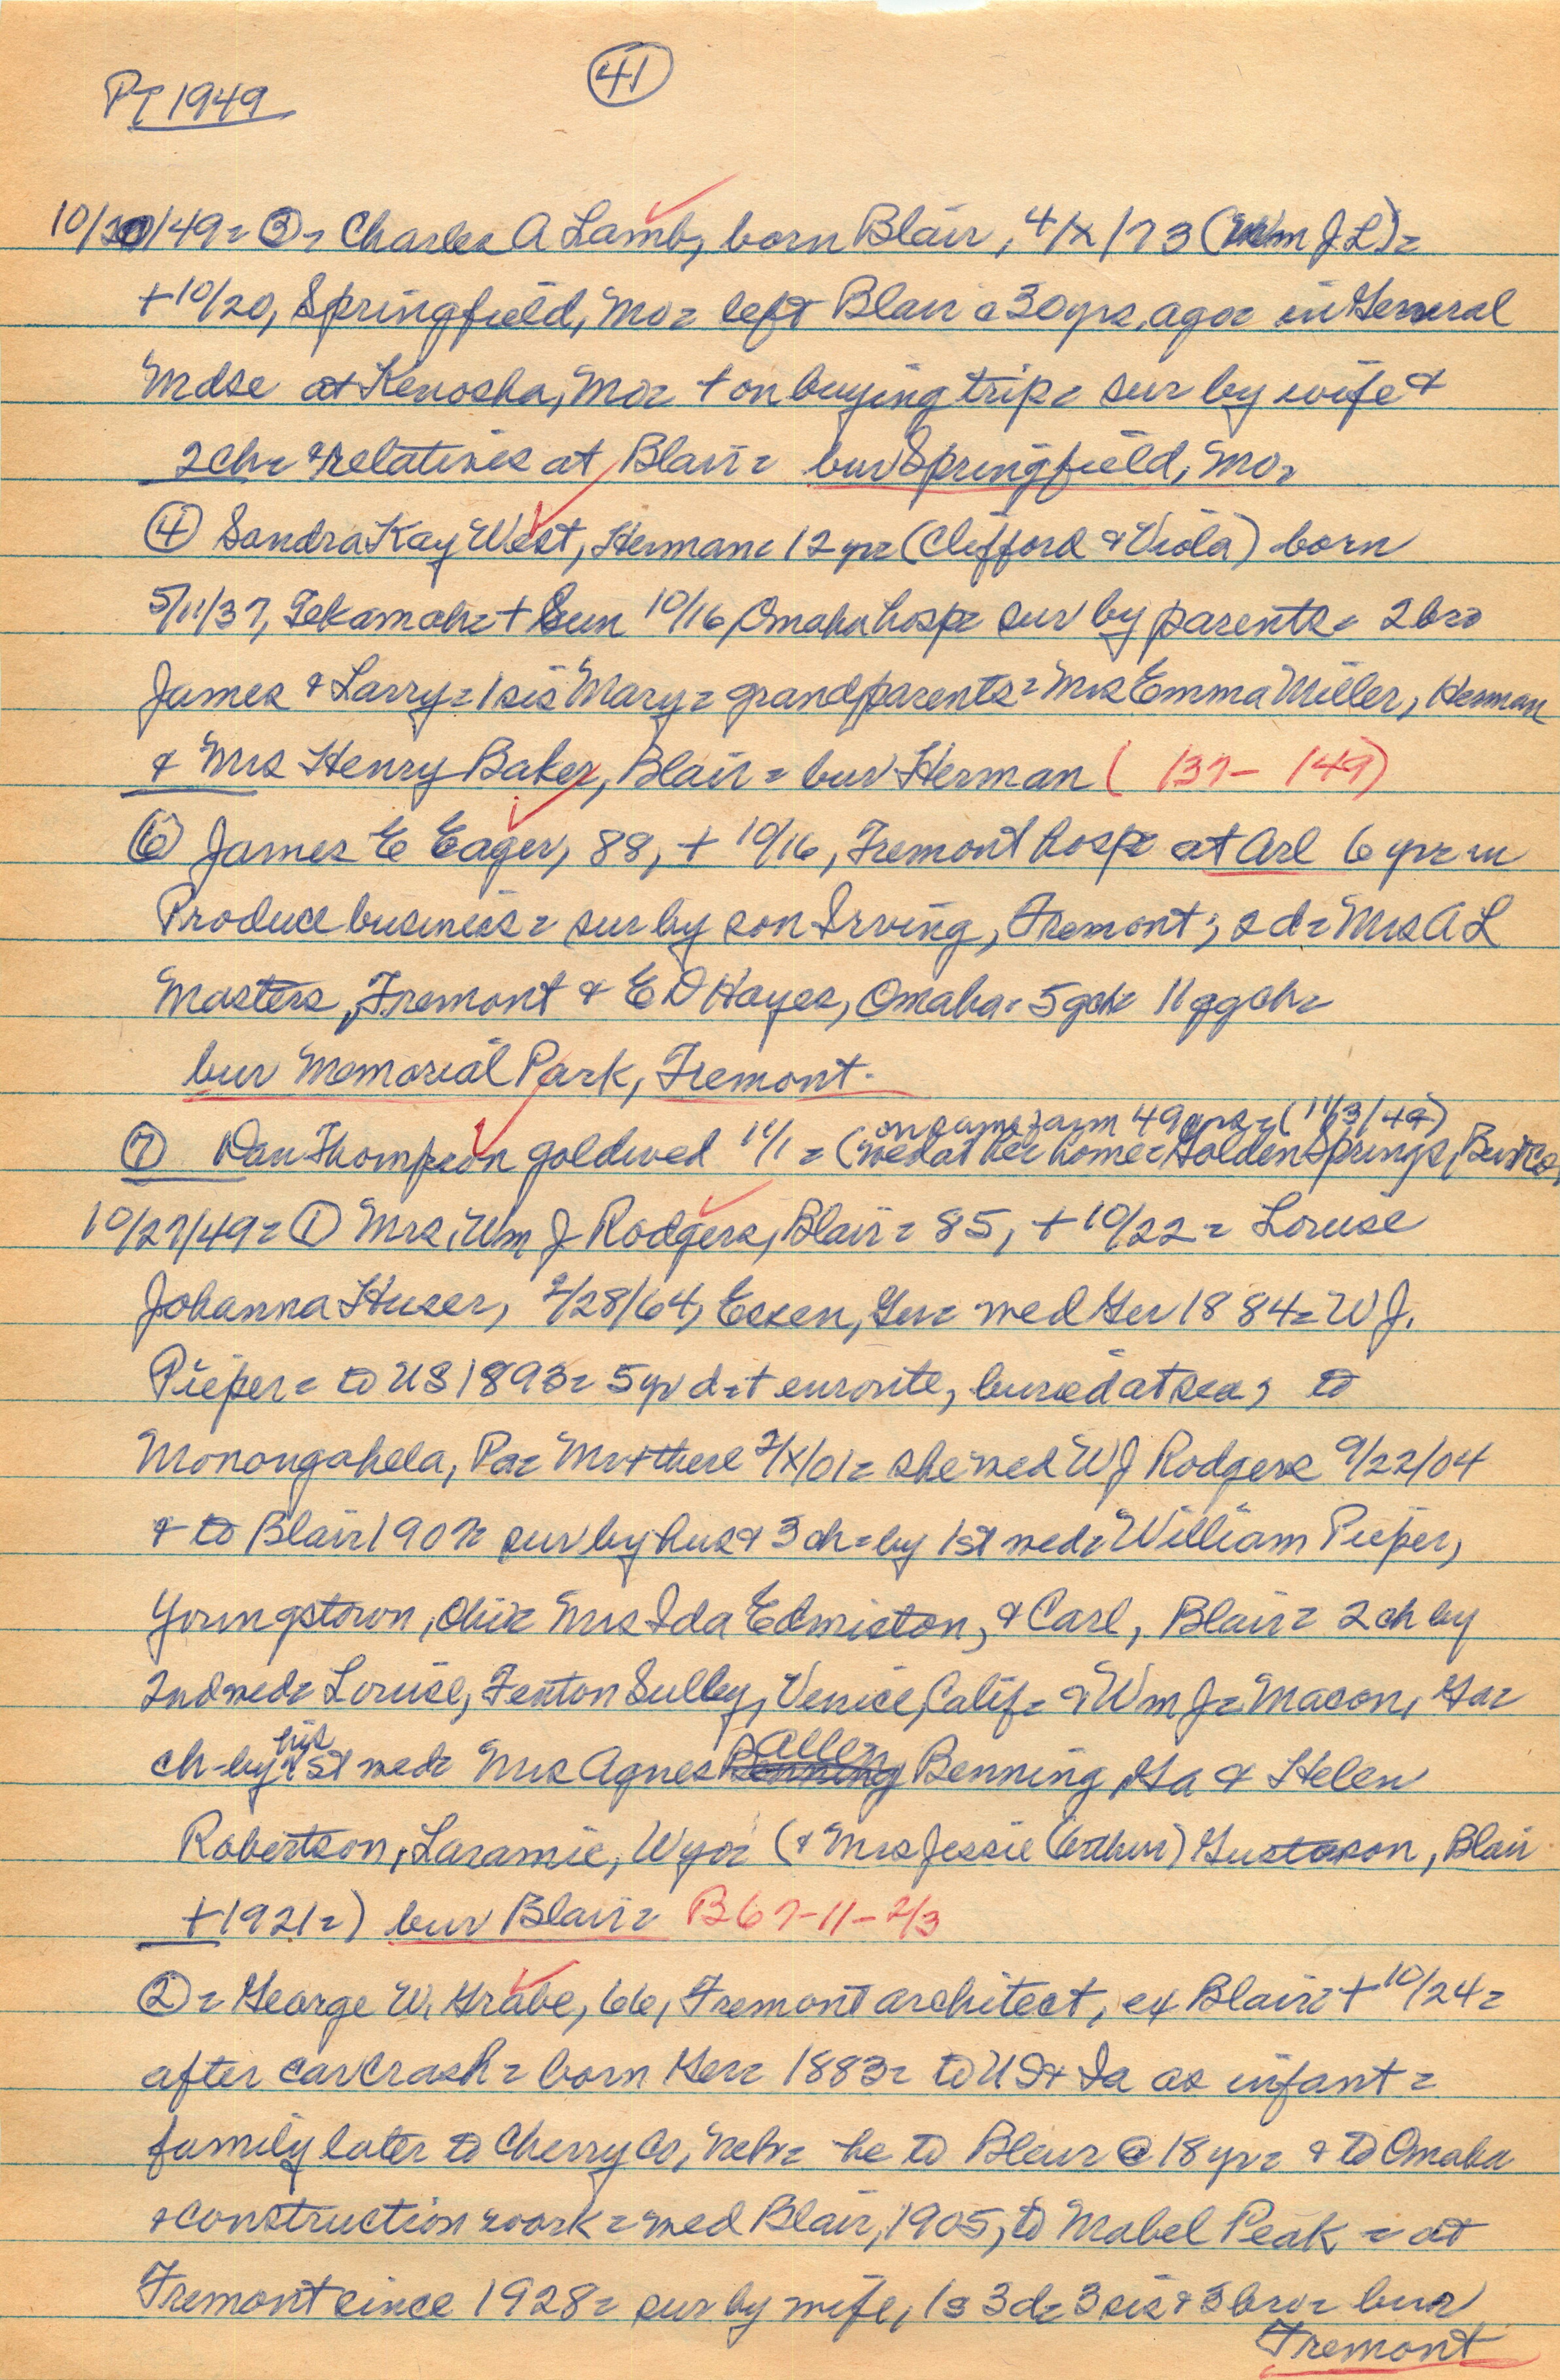 41
PT 1949
10/20/49= ③= Charles A Lamb, born Blair, 4/x/73 (Wm J L)=
+10/20, Springfield, Mo= left Blair c 30yrs, ago= in General
Mdse at Kenosha, Mo= + on buying trip= sur by wife &
2ch= & relatives at Blair= bur Springfield, Mo=
④ Sandra Kay West, Herman= 12yr= (Clifford & Viola) born
5/11/37, Tekamah= + Sun 10/16, Omaha hosp= sur by parents= 2bro
James & Larry= 1sis Mary= grandparents= Mrs Emma Miller, Herman
& Mrs Henry Baker, Blair= bur Herman ( 137- 149)
⑥ James E Eager, 88, + 10/16, Fremont hosp= at Arl 6yr= in
Produce business= sur by son Irving, Fremont; 2d= Mrs A L
Masters, Fremont & E D Hayes, Omaha= 5gch= 11ggch=
bur Memorial Park, Fremont-
on same farm 49yrs= (11/3/49)
⑦ Dan Thompson goldwed 11/1= (wed at her home= Golden Springs, Burt Co,
10/27/49= ① Mrs, Wm J Rodgers, Blair= 85, + 10/22= Louise
Johanna Huser, 2/28/64, Essen, Ger= wed Ger 1884= W J.
Pieper= to US 1893= 5yr d=+ enroute, buried at sea, to
Monongahela, Pa= Mr + there 2/x/01= she wed W J Rodgers 9/22/04
& to Blair 1907= sur by hus & 3ch= by 1st wed= William Pieper,
Youngstown, Ohi= Mrs Ida Edmiston, & Carl, Blair= 2ch by
2nd wed= Louise, Fenton Sulley, Venice, Calif= & Wm J= Macon, Ga=
ch-by his 1st wed= Mrs Agnes Allen Benning, Ga & Helen
Robertson, Laramie, Wyo= (& Mrs Jessie (Arthur) Gustason, Blair
+1921=) bur Blair= B67-11-2/3
②= George W. Grabe, 66, Fremont architect, ex Blair= + 10/24=
after car crash= born Ger= 1883= to US & Ia as infant=
family later to Cherry Co, Neb= he to Blair @ 18yr= & to Omaha
& construction work= wed Blair, 1905, to Mabel Peak = at
Fremont since 1928= sur by wife, 1s 3d= 3sis & 3bro= bur
Fremont